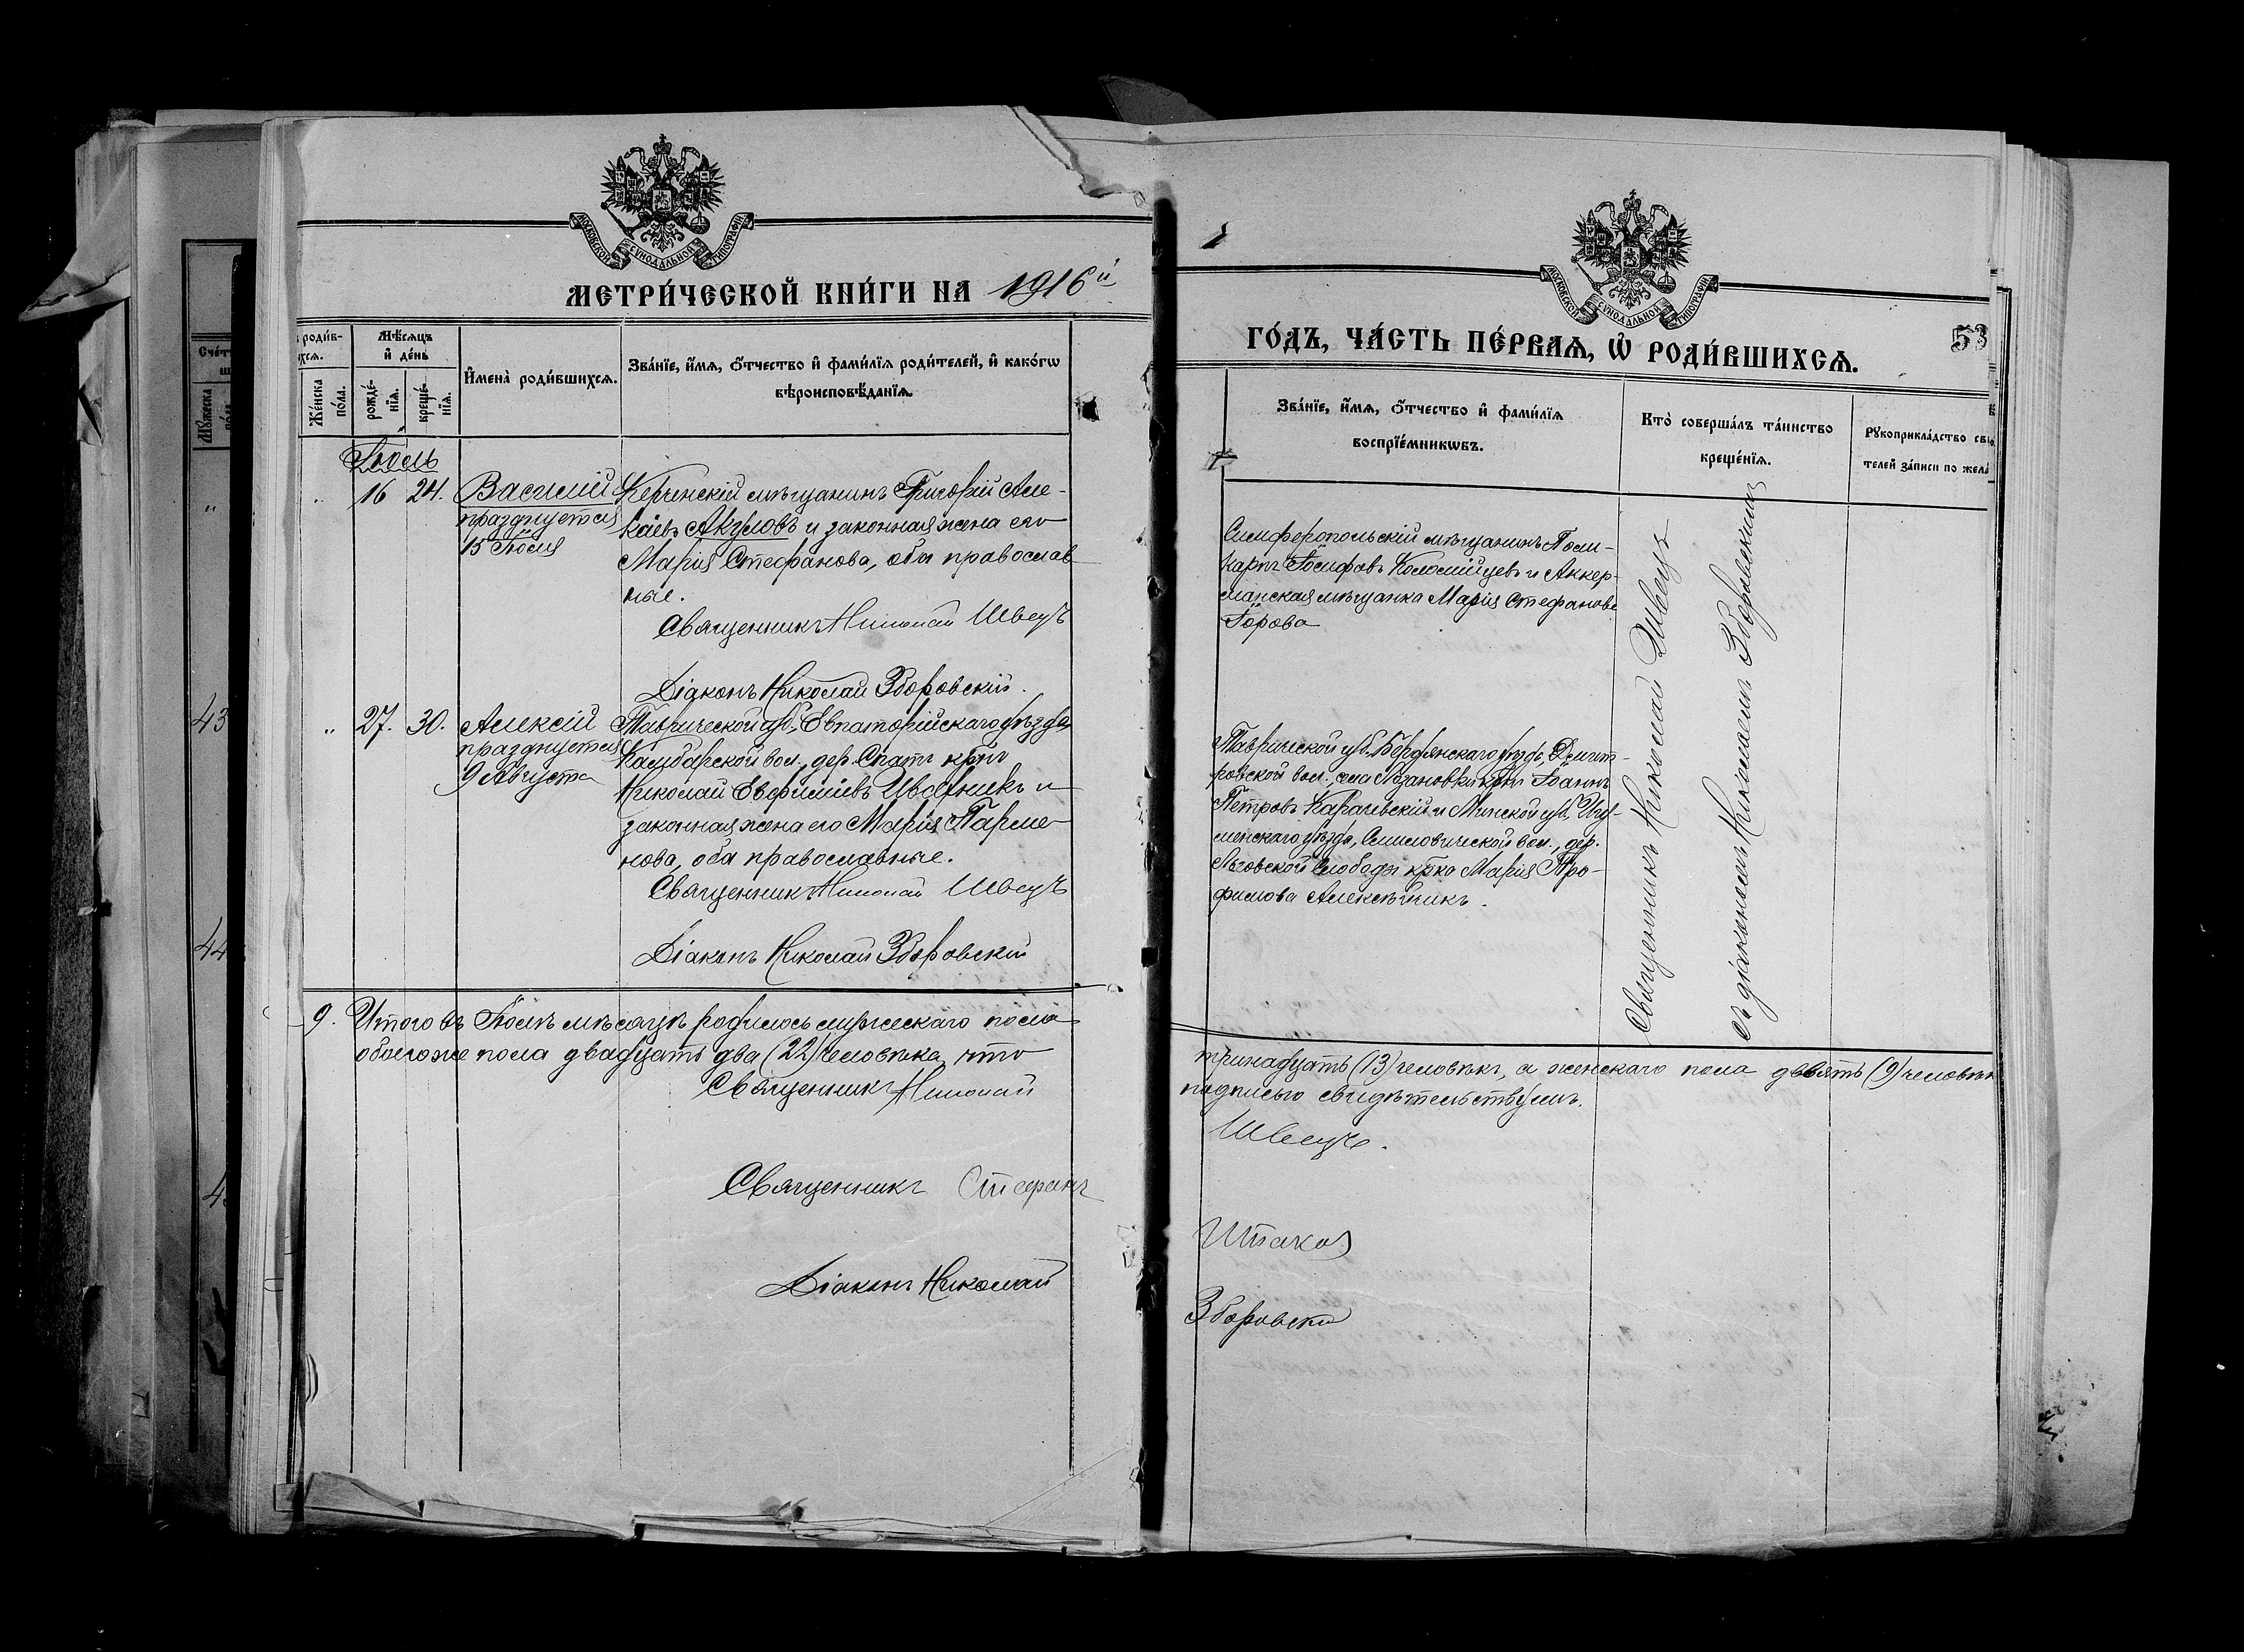 МОСКОВСКОЙ СѴНОДАЛЬНОЙ ТИПОГРАФІИ
МЕТРИ́ЧЕСКОЙ КНИ́ГИ НА 1916й
роди́в-
хсѧ.
Же́нска по́ла.
Мѣ́сѧцъ и҆ де́нь
рожде́-нїѧ.
креще́-нїѧ.
И҆мена̀ роди́вшихсѧ.
Зва́нїе, и҆́мѧ, ѻ҆́тчество и҆ фами́лїѧ роди́телей, и҆ како́гѡ
вѣроисповѣ́данїѧ.
Счетъ
Мужеска
Іюль
16 24. Василій Керченскій мѣщанинъ Григорій Але-
празднуется ксіевъ Акуловъ и законная жена его
15 Іюля Марія Стефанова, оба православ-
ные.
Священникъ Николай Швецъ
Діаконъ Николай Зборовскій.
43
27. 30. Алексій Таврической губ., Евпаторійскаго уѣзда,
празднуется Камбарской вол., дер. Спатъ крнъ
9 Августа Николай Евфиміевъ Иварникъ и
законная жена его Марія Парме-
нова, оба православные.
Священникъ Николай Швецъ
44
Діаконъ Николай Зборовскій
9. Итого въ Іюлѣ мѣсяцѣ родилось мужескаго пола
обоего же пола двадцать два (22) человѣка, что
Священникъ Николай
Священникъ Стефанъ
Діаконъ Николай
МОСКОВСКОЙ СѴНОДАЛЬНОЙ ТИПОГРАФІИ
ГО́ДЪ, ЧА́СТЬ ПЕ́РВАѦ, Ѡ҆ РОДИ́ВШИХСѦ.
53
Зва́нїе, и҆́мѧ, ѻ҆́тчество и҆ фами́лїѧ
воспрїе́мникѡвъ.
Кто̀ соверша́лъ та́инство
креще́нїѧ.
Рꙋкоприкла́дство сви
телей за́писи по жела
Симферопольскій мѣщанинъ Поли-
карпъ Іосифовъ Коломійцевъ и Аккер-
манская мѣщанка Марія Стефанова
Таврической губ. Бердянскаго уѣзда, Дмит-
ровской вол., села крнъ Іоаннъ
Петровъ Карачевскій и Минской губ., Игу-
менскаго уѣзда, вол., дер.
Слободы крка Марія Тро-
фимова
Священникъ Николай Швецъ
съ діакономъ Николаемъ Зборовскимъ
тринадцать (13) человѣкъ, а женскаго пола девять (9) человѣкъ
подписью свидѣтельствуемъ.
Швецъ.
Зборовскій